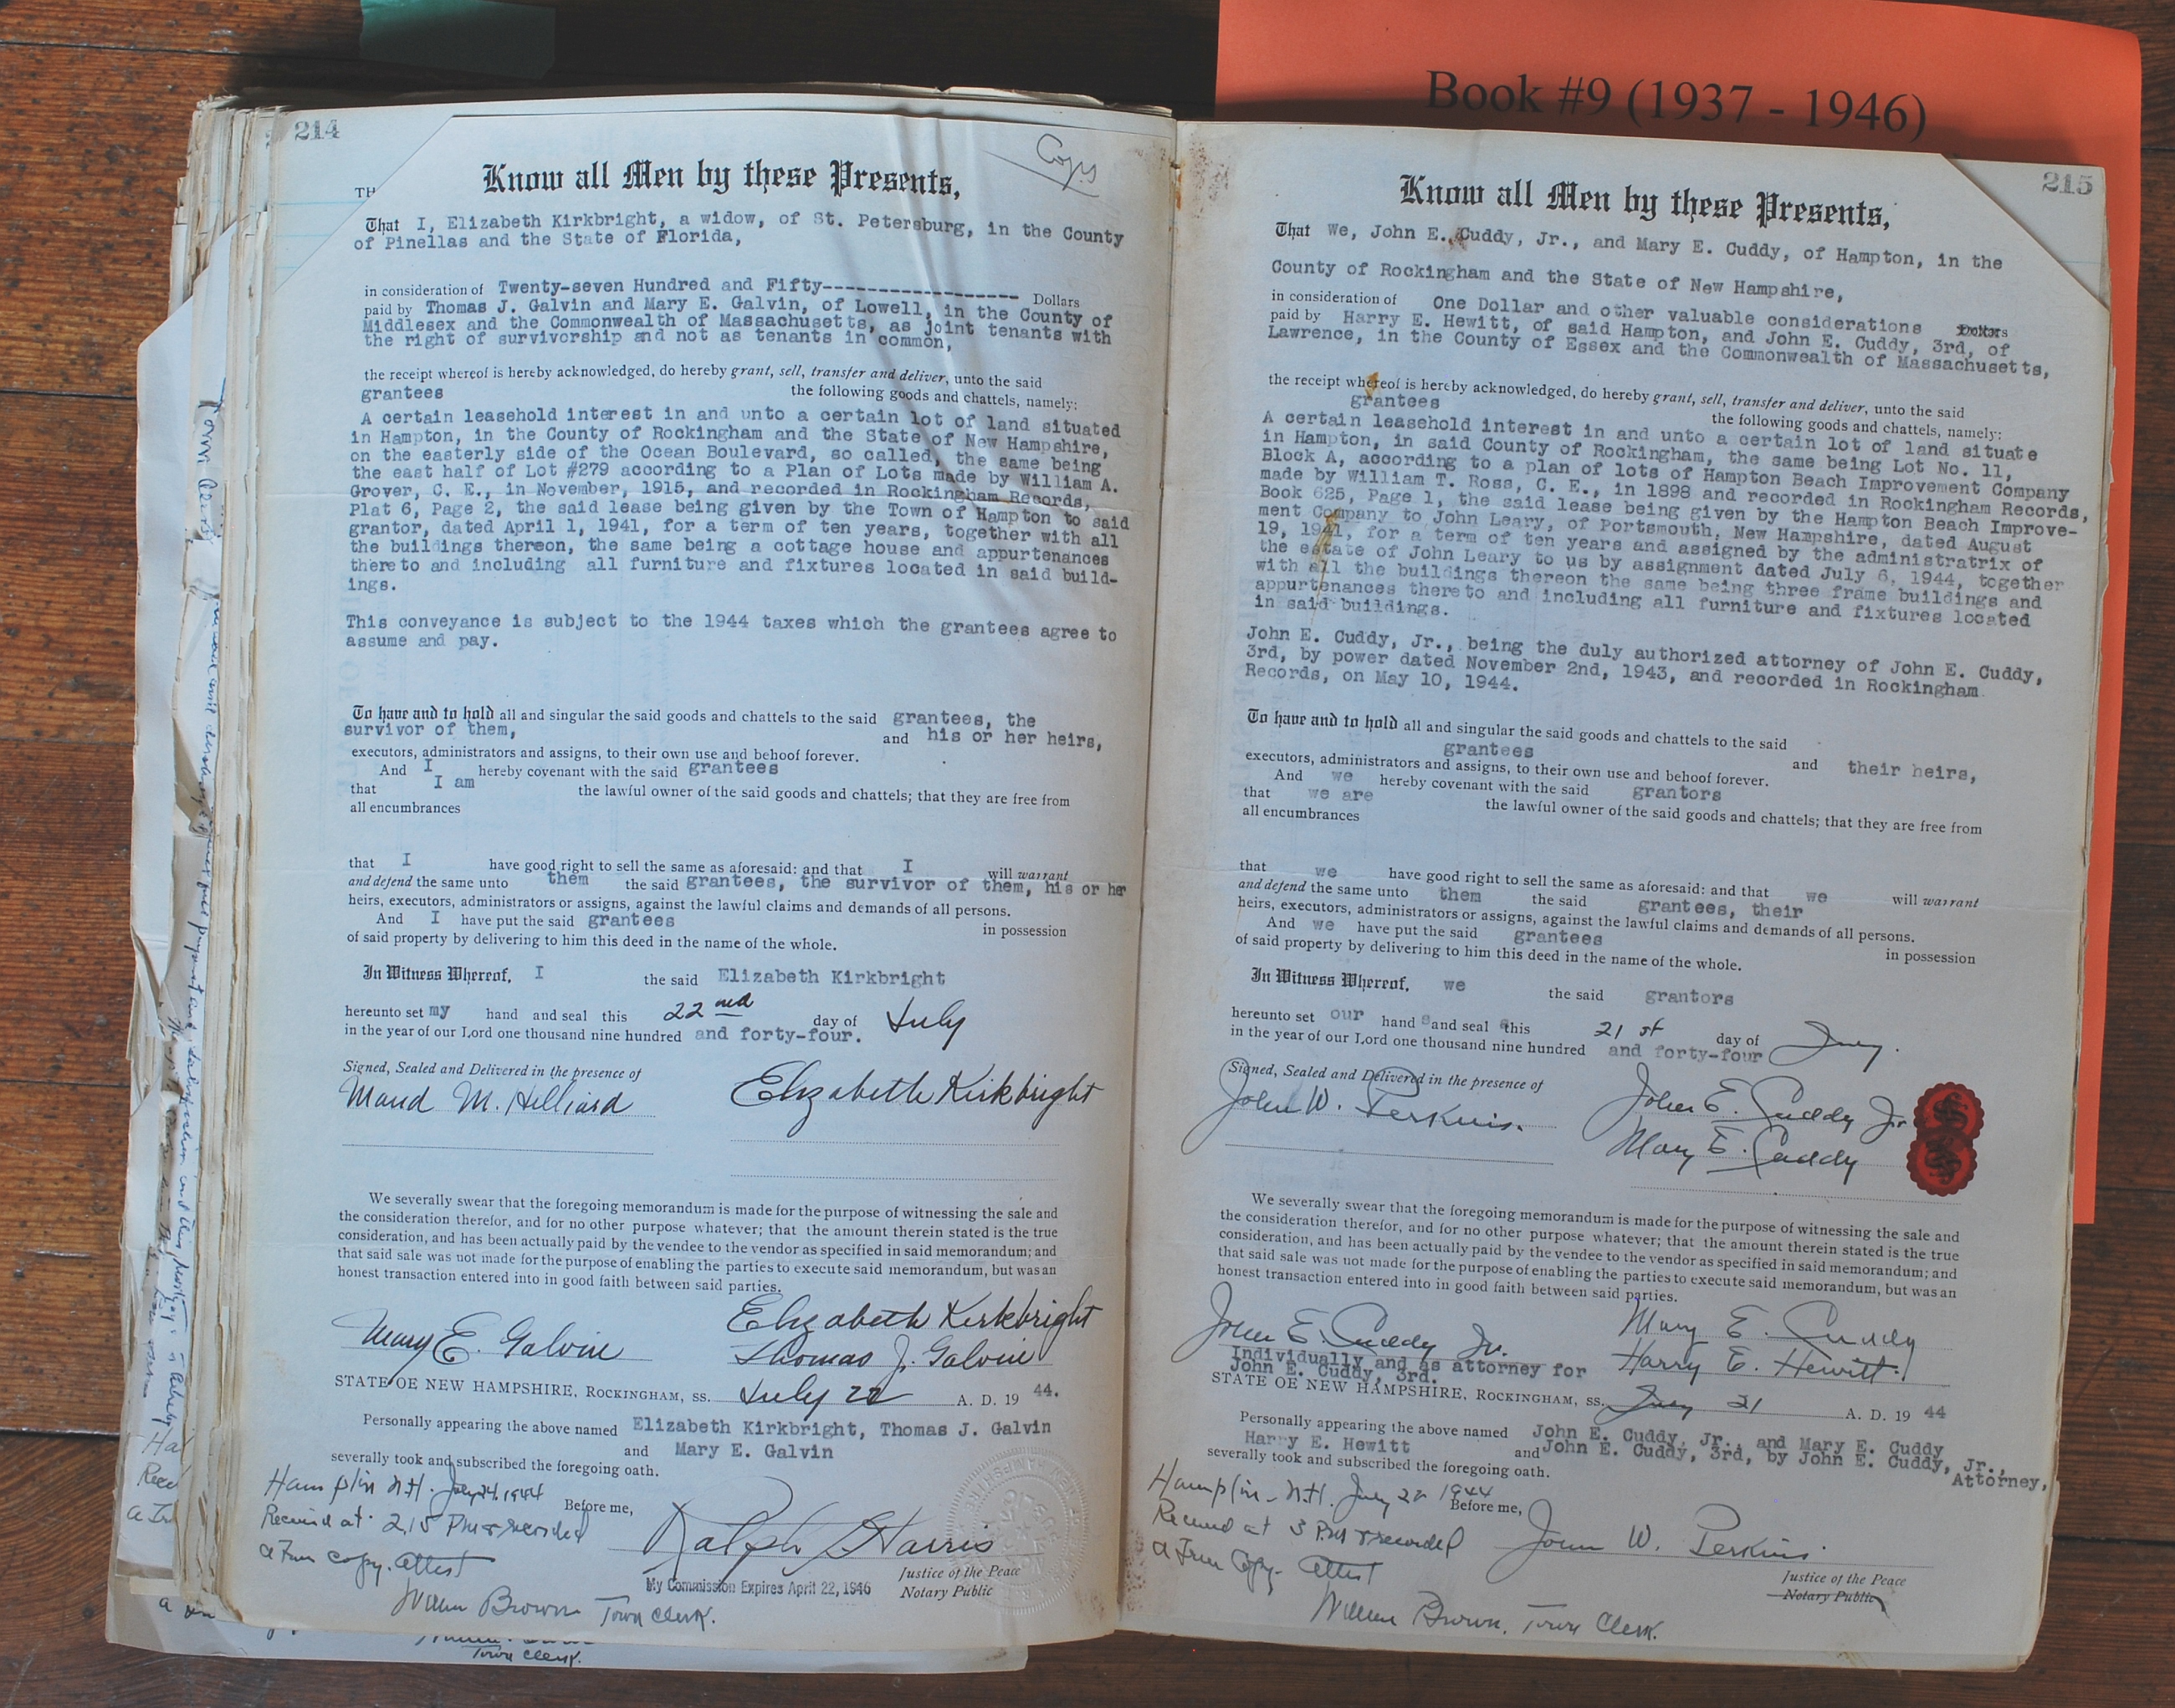 Book #9 (1937 - 1946)
214
Copy
TH
Know all Men by these Presents,
That I, Elizabeth Kirkbright, a widow, of St. Petersburg, in the County
of Pinellas and the State of Florida,
in consideration of Twenty-seven Hundred and Fifty------------------ Dollars
paid by Thomas J. Galvin and Mary E. Galvin, of Lowell, in the County of
Middlesex and the Commonwealth of Massachusetts, as joint tenants with
the right of survivorship and not as tenants in common,
the receipt whereof is hereby acknowledged, do hereby grant, sell, transfer and deliver, unto the said
grantees the following goods and chattels, namely:
A certain leasehold interest in and unto a certain lot of land situated
in Hampton, in the County of Rockingham and the State of New Hampshire,
on the easterly side of the Ocean Boulevard, so called, the same being
the east half of Lot #279 according to a Plan of Lots made by William A.
Grover, C. E., in November, 1915, and recorded in Rockingham Records,
Plat 6, Page 2, the said lease being given by the Town of Hampton to said
grantor, dated April 1, 1941, for a term of ten years, together with all
the buildings thereon, the same being a cottage house and appurtenances
thereto and including all furniture and fixtures located in said build-
ings.
This conveyance is subject to the 1944 taxes which the grantees agree to
assume and pay.
To have and to hold all and singular the said goods and chattels to the said grantees, the
survivor of them, and his or her heirs,
executors, administrators and assigns, to their own use and behoof forever.
And I hereby covenant with the said grantees
that I am the lawful owner of the said goods and chattels; that they are free from
all encumbrances
that I have good right to sell the same as aforesaid: and that I will warrant
and defend the same unto them the said grantees, the survivor of them, his or her
heirs, executors, administrators or assigns, against the lawful claims and demands of all persons.
And I have put the said grantees in possession
of said property by delivering to him this deed in the name of the whole.
In Witness Whereof, I the said Elizabeth Kirkbright
hereunto set my hand and seal this 22nd day of July
in the year of our Lord one thousand nine hundred and forty-four.
Signed, Sealed and Delivered in the presence of
Maud M. Hilliard Elizabeth Kirkbright
We severally swear that the foregoing memorandum is made for the purpose of witnessing the sale and
the consideration therefor, and for no other purpose whatever; that the amount therein stated is the true
consideration, and has been actually paid by the vendee to the vendor as specified in said memorandum; and
that said sale was not made for the purpose of enabling the parties to execute said memorandum, but was an
honest transaction entered into in good faith between said parties.
Elizabeth Kirkbright
Mary E. Galvin Thomas J. Galvin
STATE OE NEW HAMPSHIRE, ROCKINGHAM, SS. July 22 A. D. 19 44.
Personally appearing the above named Elizabeth Kirkbright, Thomas J. Galvin
and Mary E. Galvin
severally took and subscribed the foregoing oath.
Hampton N.H. July 24, 1944 Before me,
Received at 2.15 PM & recorded
a True copy. attest Ralph Harris
Justice of the Peace
My Commission Expires April 22, 1946 Notary Public
William Brown Town Clerk.
Town Clerk.
215
Know all Men by these Presents,
That We, John E. Cuddy, Jr., and Mary E. Cuddy, of Hampton, in the
County of Rockingham and the State of New Hampshire,
in consideration of One Dollar and other valuable considerations Dollars
paid by Harry E. Hewitt, of said Hampton, and John E. Cuddy, 3rd, of
Lawrence, in the County of Essex and the Commonwealth of Massachusetts,
the receipt whereof is hereby acknowledged, do hereby grant, sell, transfer and deliver, unto the said
grantees the following goods and chattels, namely:
A certain leasehold interest in and unto a certain lot of land situate
in Hampton, in said County of Rockingham, the same being Lot No. 11,
Block A, according to a plan of lots of Hampton Beach Improvement Company
made by William T. Ross, C. E., in 1898 and recorded in Rockingham Records,
Book 625, Page 1, the said lease being given by the Hampton Beach Improve-
ment Company to John Leary, of Portsmouth, New Hampshire, dated August
19, 1941, for a term of ten years and assigned by the administratrix of
the estate of John Leary to us by assignment dated July 6, 1944, together
with all the buildings thereon the same being three frame buildings and
appurtenances thereto and including all furniture and fixtures located
in said buildings.
John E. Cuddy, Jr., being the duly authorized attorney of John E. Cuddy,
3rd, by power dated November 2nd, 1943, and recorded in Rockingham
Records, on May 10, 1944.
To have and to hold all and singular the said goods and chattels to the said
grantees and their heirs,
executors, administrators and assigns, to their own use and behoof forever.
And we hereby covenant with the said grantors
that we are the lawful owner of the said goods and chattels; that they are free from
all encumbrances
that we have good right to sell the same as aforesaid: and that we will warrant
and defend the same unto them the said grantees, their
heirs, executors, administrators or assigns, against the lawful claims and demands of all persons.
And we have put the said grantees in possession
of said property by delivering to him this deed in the name of the whole.
In Witness Whereof, we the said grantors
hereunto set our hands and seals this 21st day of July.
in the year of our Lord one thousand nine hundred and forty-four
Signed, Sealed and Delivered in the presence of
John W. Perkins. John E. Cuddy Jr
Mary E. Cuddy
We severally swear that the foregoing memorandum is made for the purpose of witnessing the sale and
the consideration therefor, and for no other purpose whatever; that the amount therein stated is the true
consideration, and has been actually paid by the vendee to the vendor as specified in said memorandum; and
that said sale was not made for the purpose of enabling the parties to execute said memorandum, but was an
honest transaction entered into in good faith between said parties.
John E. Cuddy Jr. Mary E. Cuddy
Individually and as attorney for Harry E. Hewitt.
John E. Cuddy, 3rd.
STATE OE NEW HAMPSHIRE, ROCKINGHAM, SS. July 21 A. D. 19 44
Personally appearing the above named John E. Cuddy, Jr., and Mary E. Cuddy
Harry E. Hewitt and John E. Cuddy, 3rd, by John E. Cuddy, Jr.,
severally took and subscribed the foregoing oath. Attorney,
Hampton, N.H. July 22 1944 Before me,
Received at 3 PM & recorded
a True Copy. attest John W. Perkins.
Justice of the Peace
Notary Public
William Brown, Town Clerk.